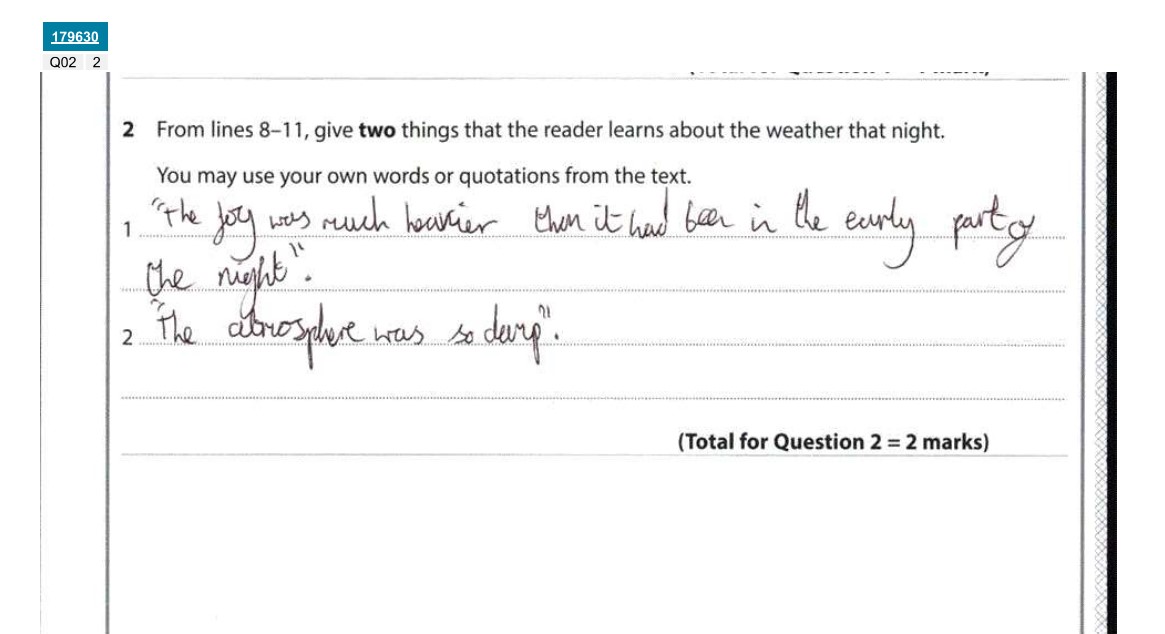 179630
Q02 2
2 From lines 8–11, give two things that the reader learns about the weather that night.
You may use your own words or quotations from the text.
1 "the fog was much heavier then it had been in the early part of
the night".
2 "The atmosphere was so damp".
(Total for Question 2 = 2 marks)